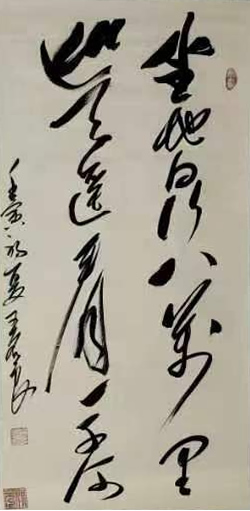 坐地日行八萬里
巡天遥看一千河
壬寅初夏王